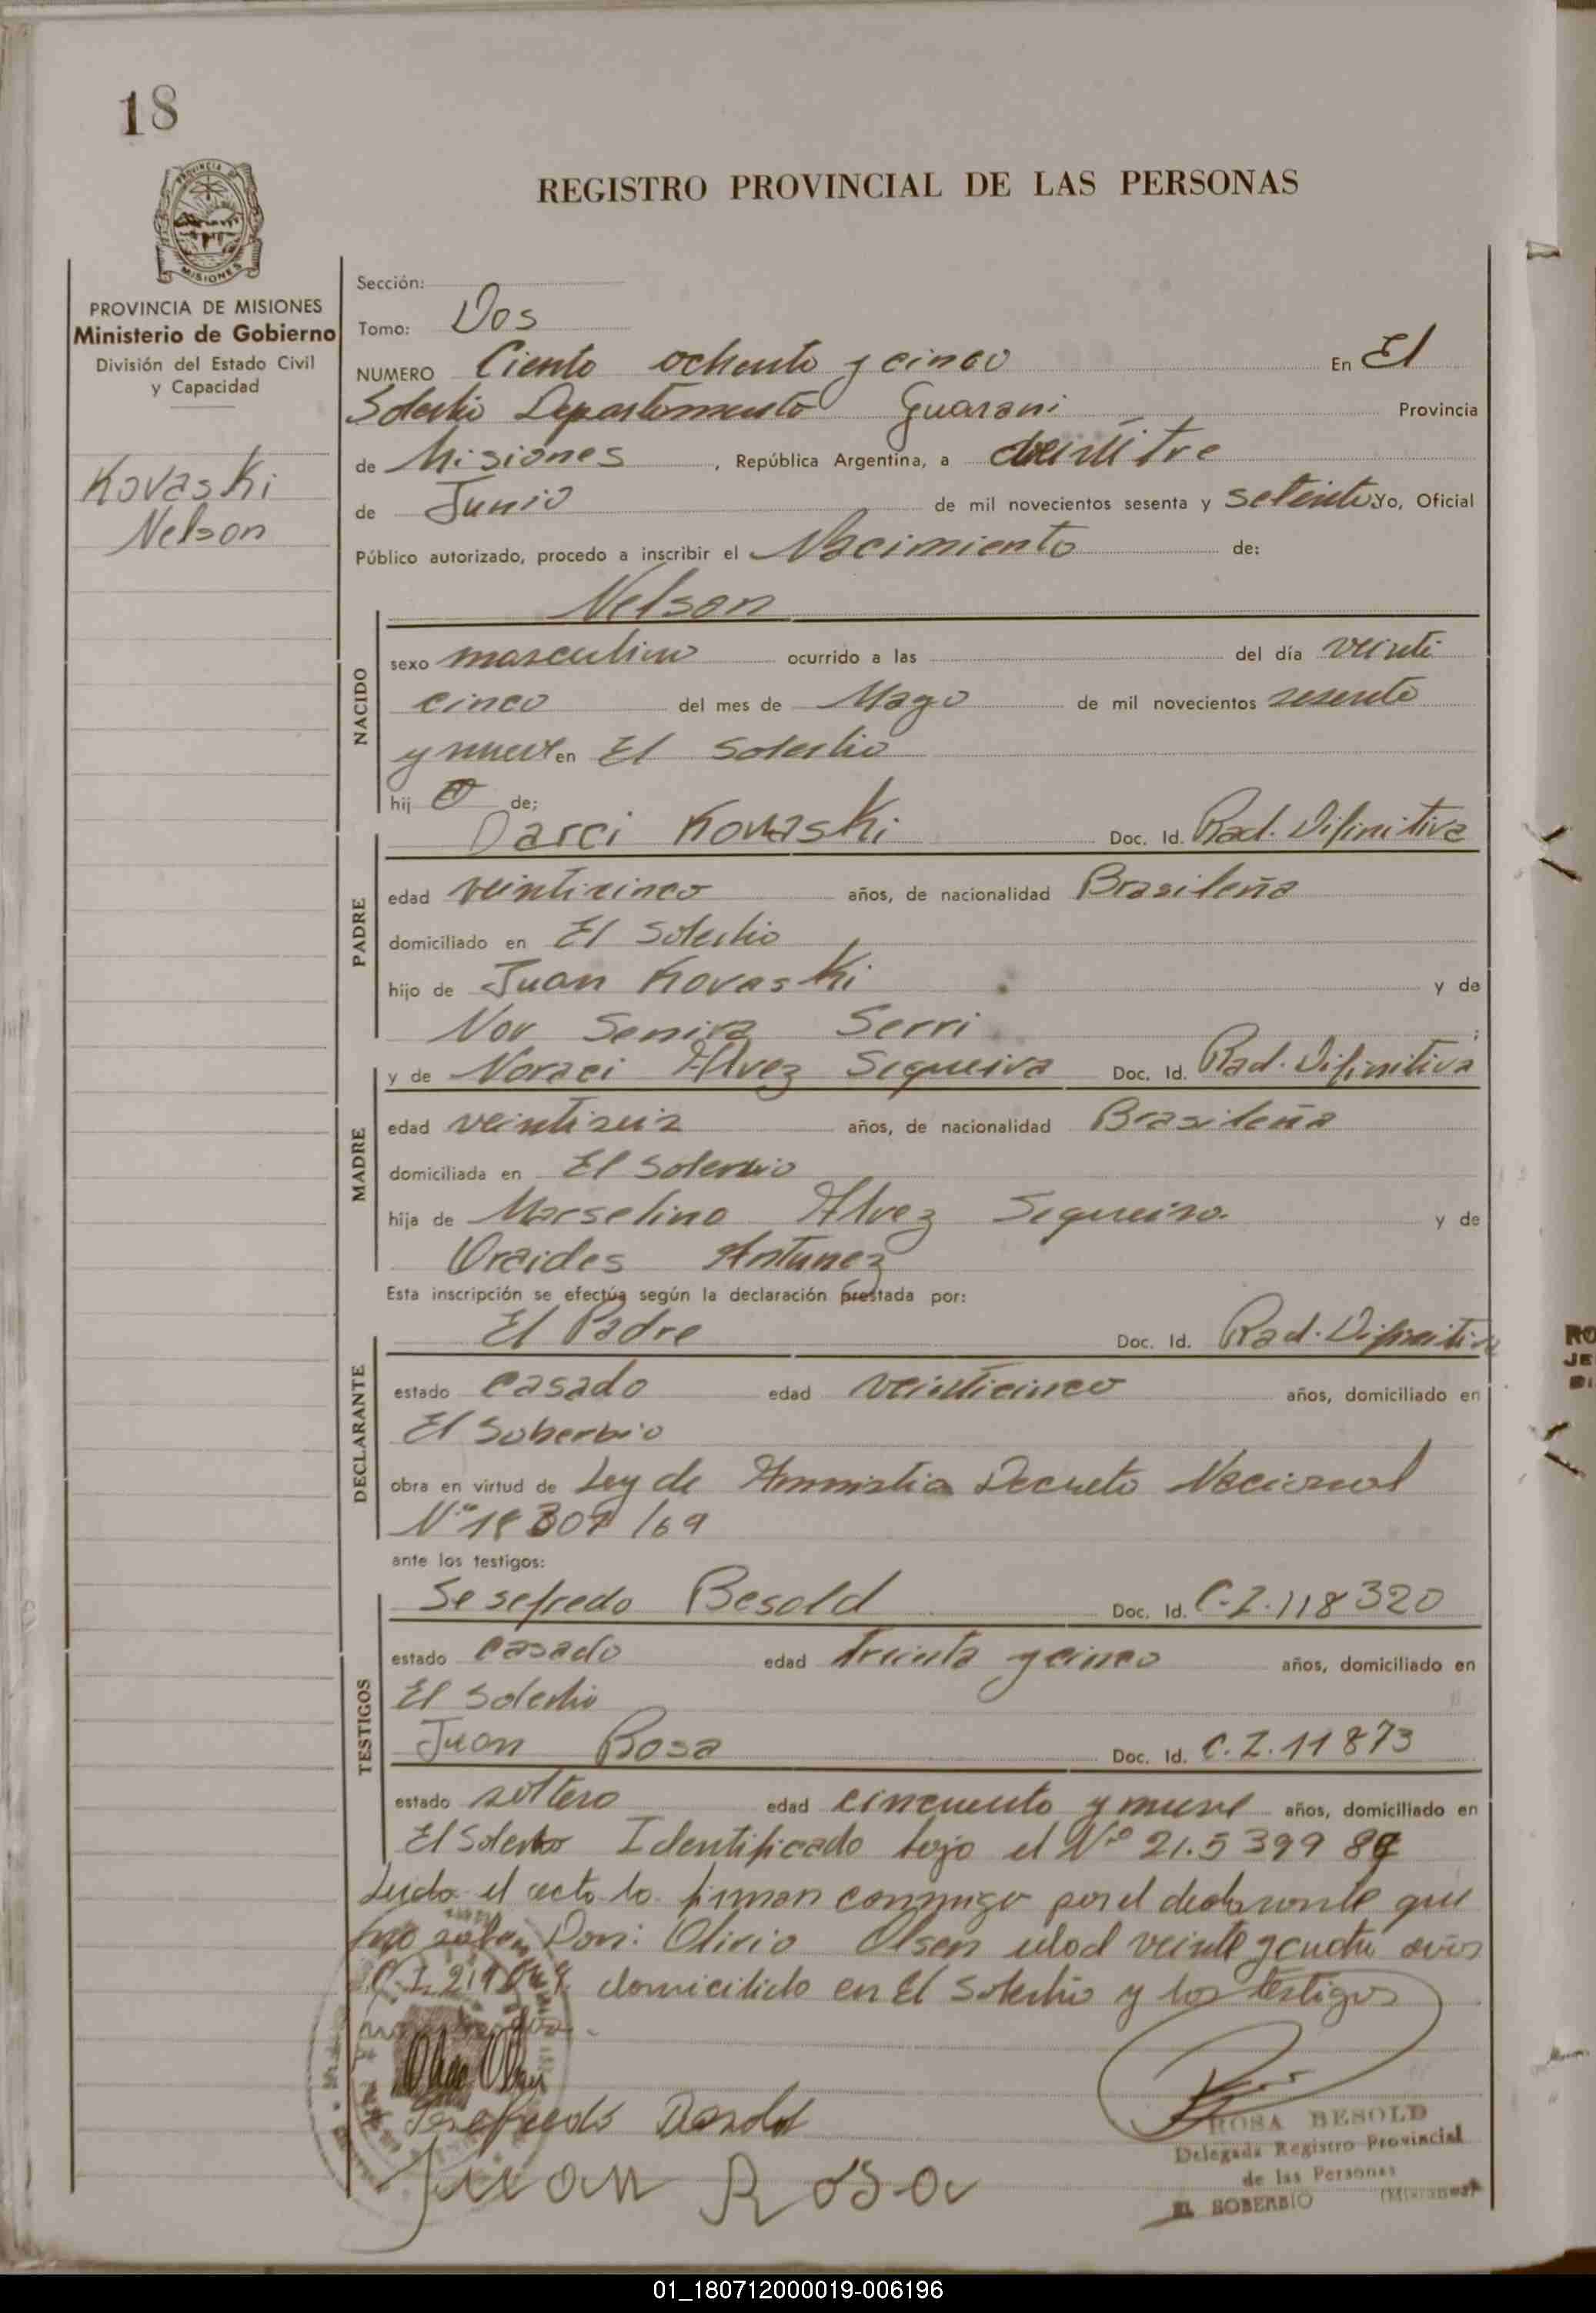 18
REGISTRO PROVINCIAL DE LAS PERSONAS
PROVINCIA
MISIONES
PROVINCIA DE MISIONES
Ministerio de Gobierno
División del Estado Civil
y Capacidad
Kovaski
Nelson
Sección:
Tomo: Dos
NUMERO Ciento ochenta y cinco En El
Soberbio Departamento Guarani Provincia
de Misiones, República Argentina, a
de Junio de mil novecientos sesenta y setenta Yo, Oficial
Público autorizado, procedo a inscribir el Nacimiento de:
Nelson
NACIDO
sexo masculino ocurrido a las del día veinti
cinco del mes de Mayo de mil novecientos sesenta
y nueve en El Soberbio
hij o de:
Darci Kovaski Doc. Id. Rad. Difinitiva
PADRE
edad veinticinco años, de nacionalidad Brasileña
domiciliado en El Soberbio
hijo de Juan Kovaski y de
Serri ;
y de Noraci Alvez Sequeira Doc. Id. Rad. Difinitiva
MADRE
edad veintiseis años, de nacionalidad Brasileña
domiciliada en El Soberbio
hija de Marselino Alvez Sequeira. y de
Oraides Antunez
Esta inscripción se efectúa según la declaración prestada por:
El Padre Doc. Id. Rad. Difinitiva
DECLARANTE
estado casado edad veinticinco años, domiciliado en
El Soberbio
obra en virtud de Ley de Amnistia Decreto Nacional
/69
ante los testigos:
Sesefredo Besold Doc. Id. C.I. 118320
TESTIGOS
estado casado edad treinta y cinco años, domiciliado en
El Soberbio
Juan Rosa Doc. Id. C.I. 11873
estado soltero edad cincuenta y nueve años, domiciliado en
El Soberbio Identificado bajo el Nº 21.5399
el acto lo firman conmigo por el declarante que
no saber Don: Olirio Olsen edad veinte y cuatro años
C.I. domicilido en El Soberbio y los testigos
Sesefredo Besold
Juan Rosa
ROSA BESOLD
Delegada Registro Provincial
de las Personas
EL SOBERBIO (Misiones)
01_180712000019-006196